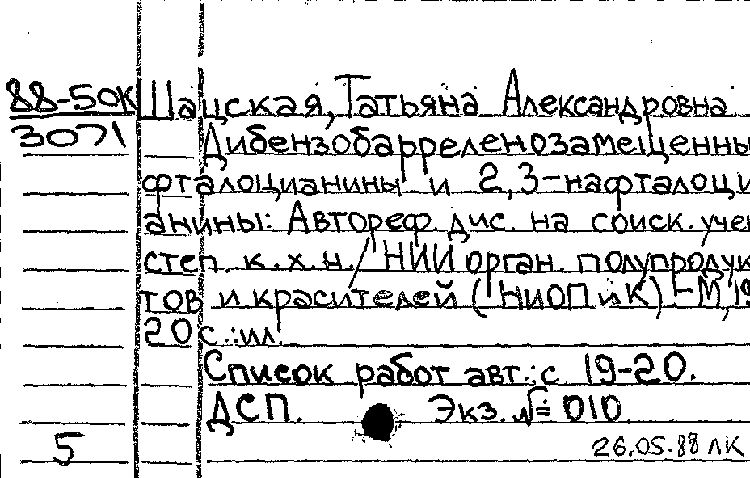 88-50К Шацская, Татьяна Александровна
3071 Дибензобарреленозамещенны
фталоцианины и 2,3-нафталоци
анины: Автореф. дис. на соиск. учен
степ. к.х.н. / НИИ орган. полупродук
тов и красителей (НИОПиК) - М, 19
20 с.: ил.
Список работ авт.: с 19-20.
ДСП. Экз. №= 010
5
26.05.88 ЛК